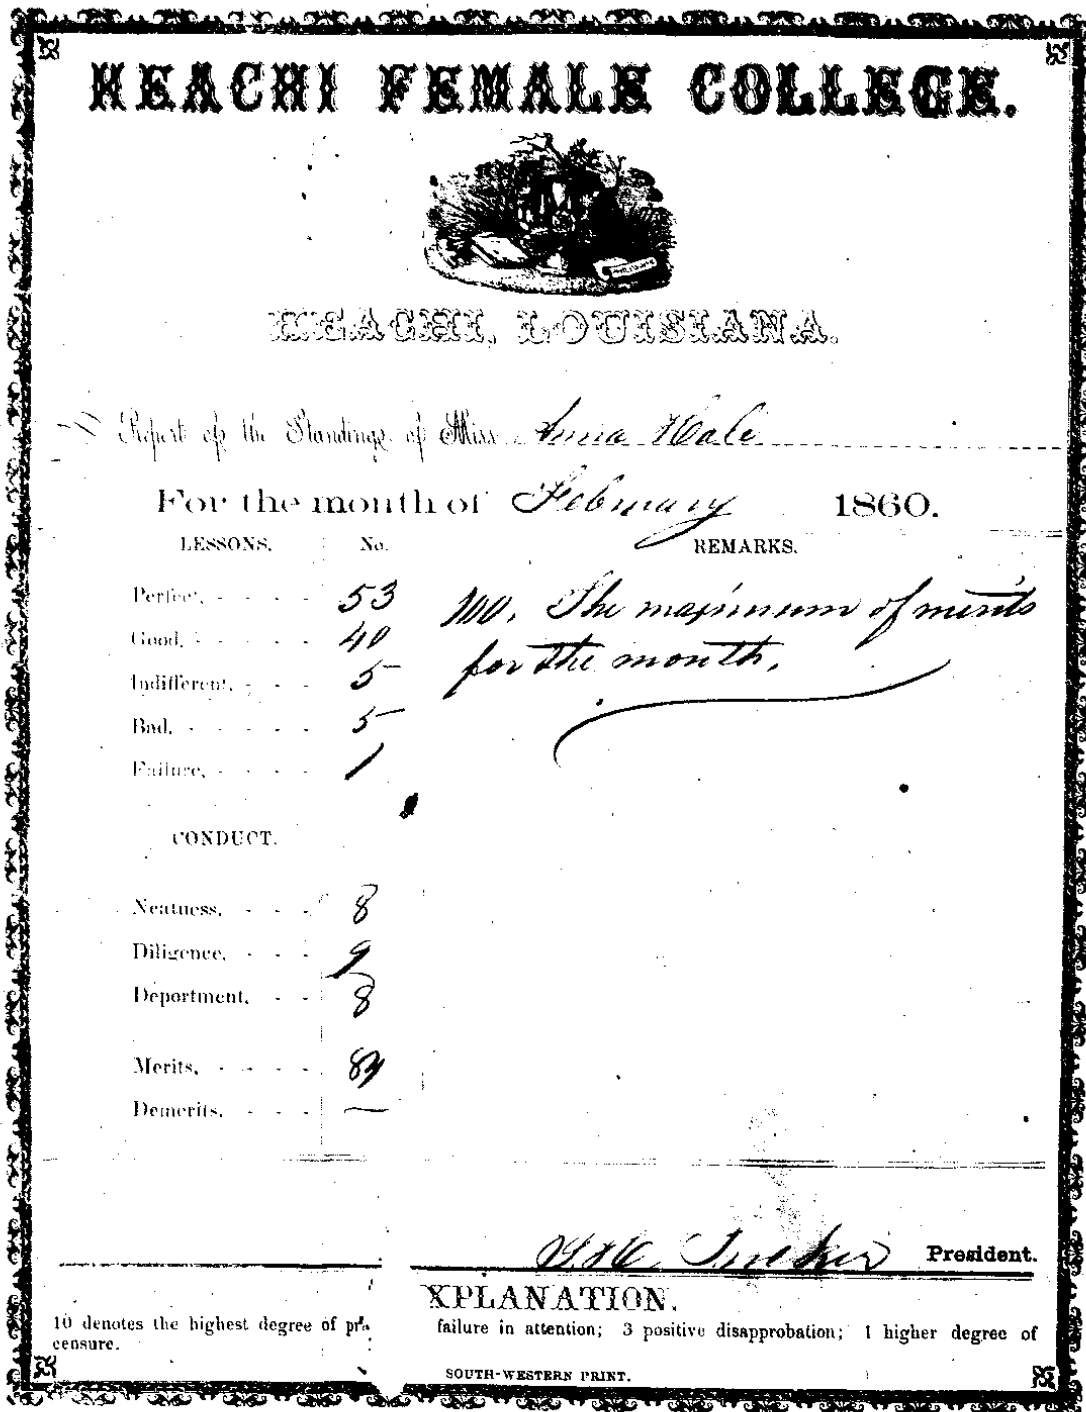 KEACHI FEMALE COLLEGE.
KEACHI, LOUISIANA.
Report of the Standings of Miss Anna Hale
For the month of February 1860.
LESSONS. No. REMARKS.
Perfect, - - - - 53 100. The maximum of merits
Good, - - - - 40 for the month.
Indifferent, - - - 5
Bad, - - - - 5
Failure, - - - - 1
CONDUCT.
Neatness, - - - 8
Diligence, - - - 9
Deportment, - - 8
Merits, - - - - 84
Demerits, - - - —
Tucker President.
XPLANATION.
10 denotes the highest degree of failure in attention; 3 positive disapprobation; 1 higher degree of
censure.
SOUTH-WESTERN PRINT.